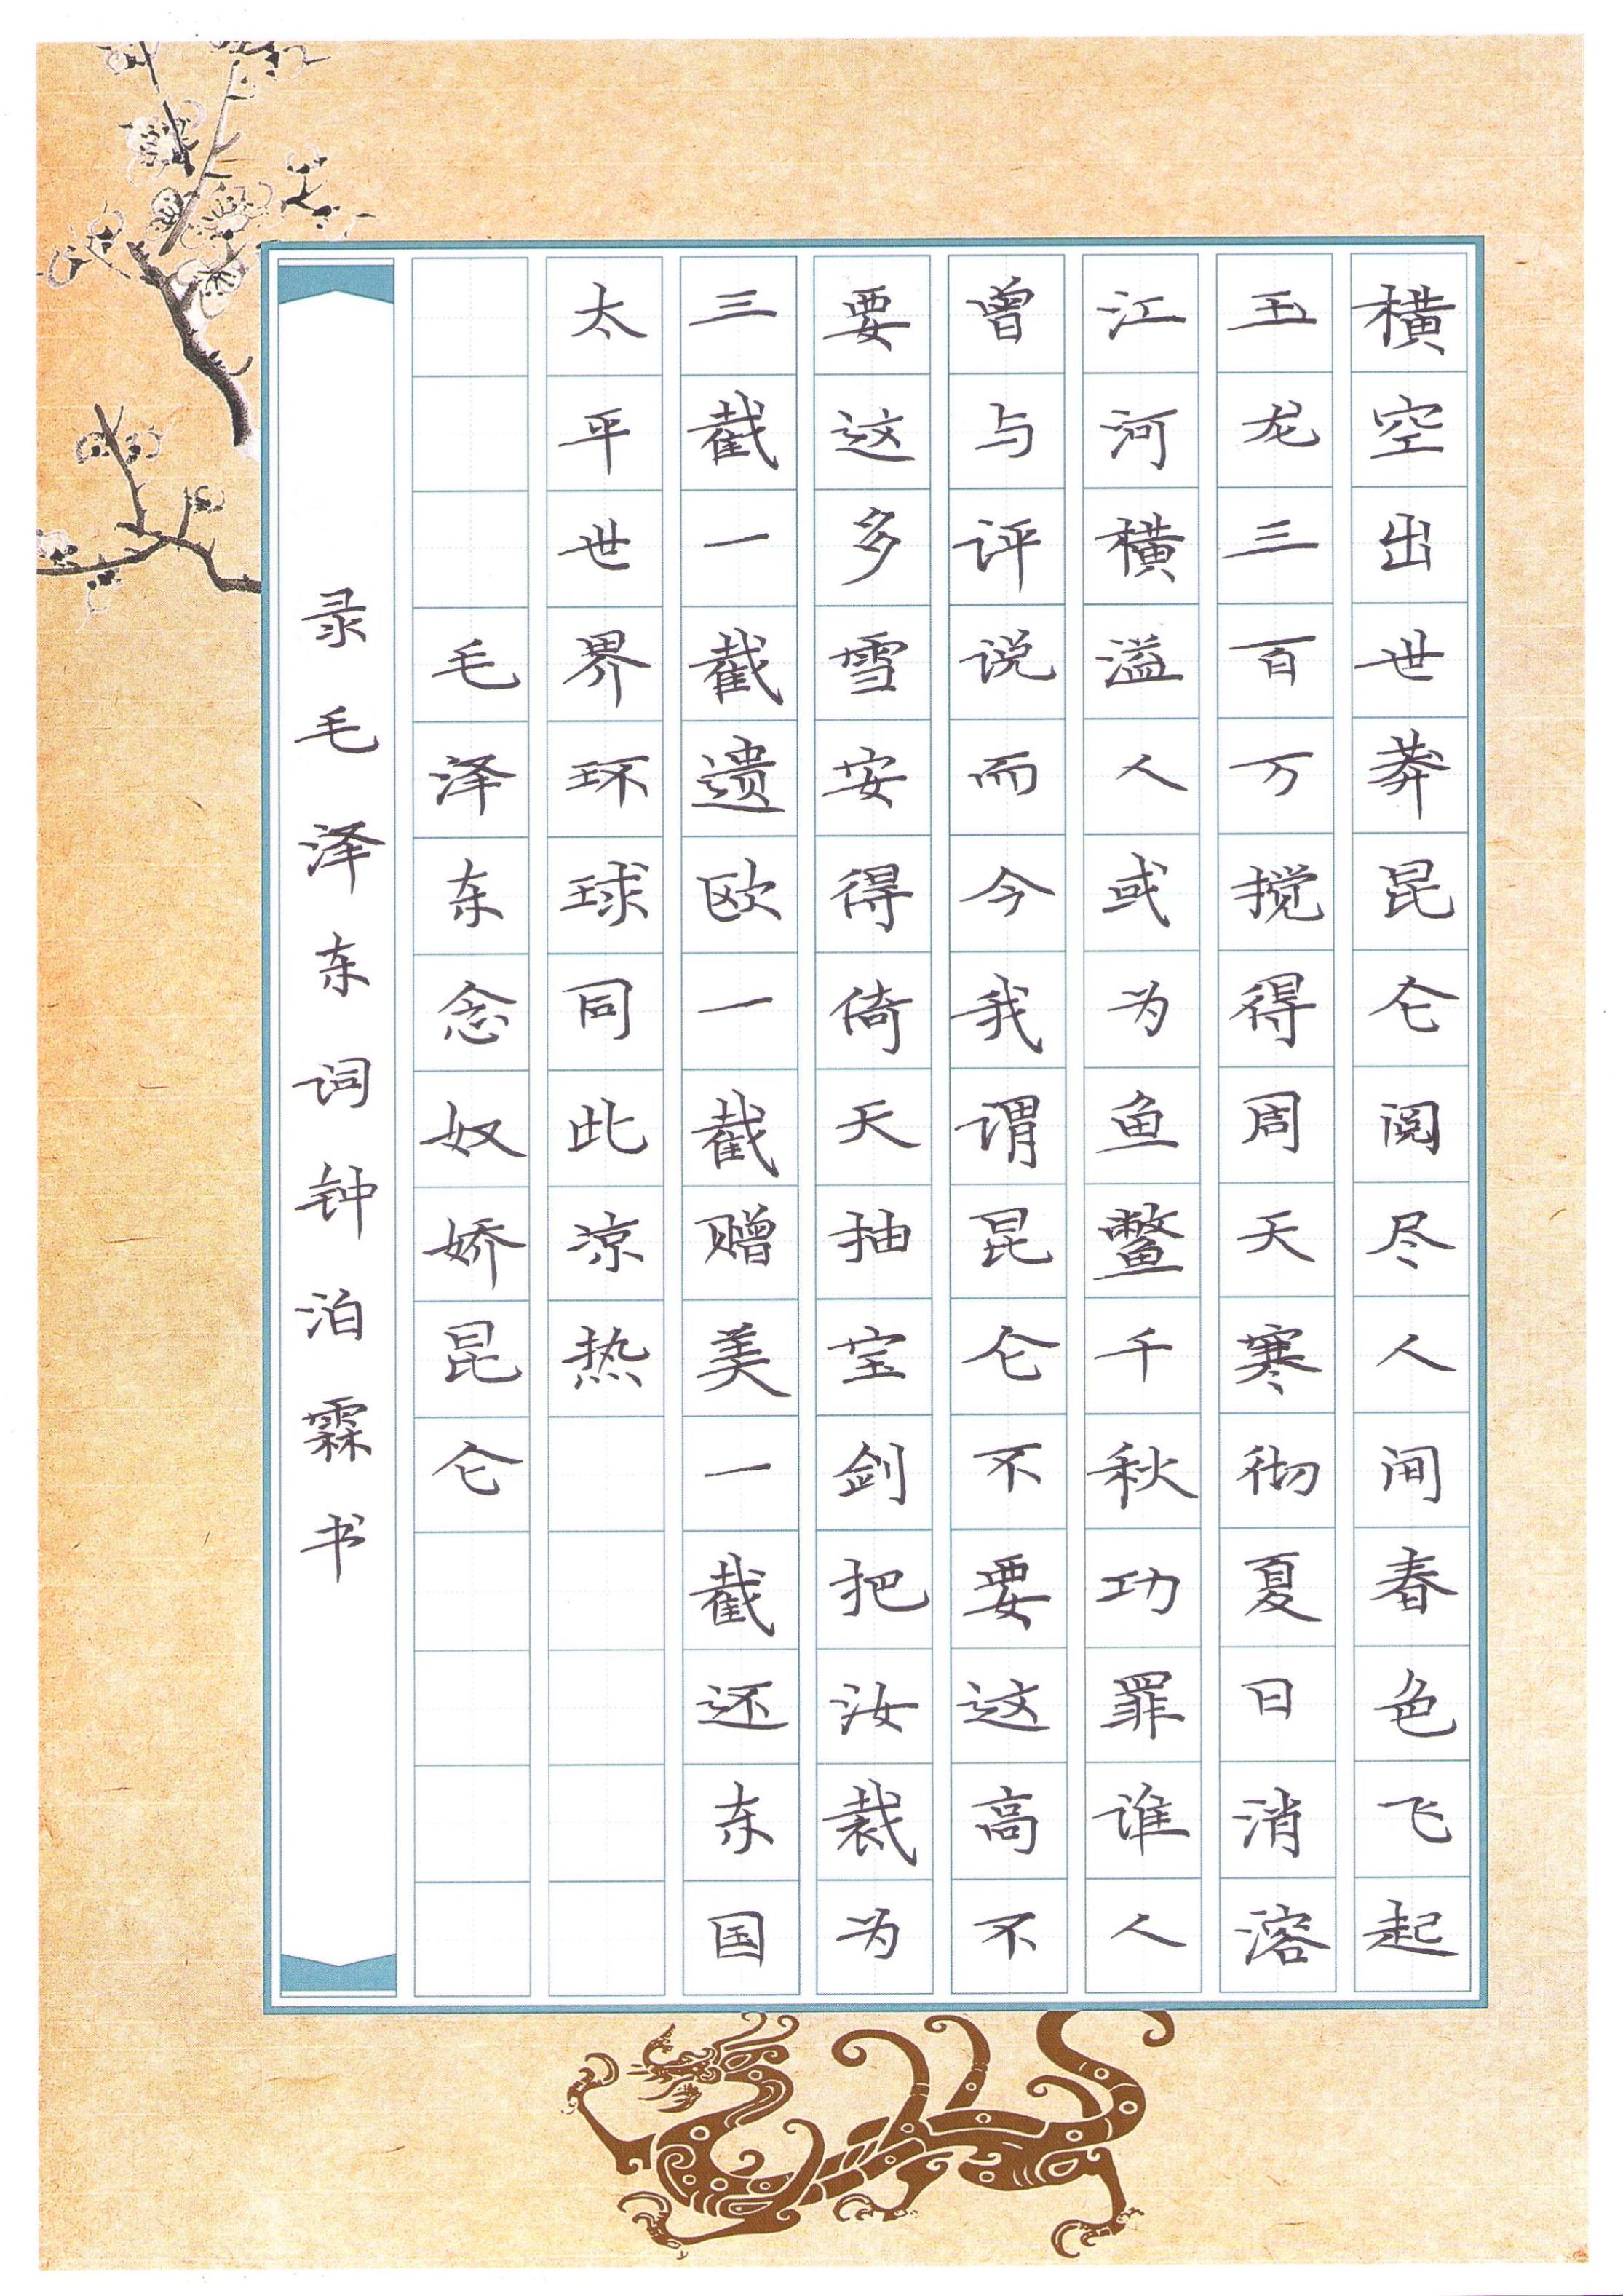 横空出世莽昆仑阅尽人间春色飞起
玉龙三百万搅得周天寒彻夏日消溶
江河横溢人或为鱼鳖千秋功罪谁人
曾与评说而今我谓昆仑不要这高不
要这多雪安得倚天抽宝剑把汝裁为
三截一截遗欧一截赠美一截还东国
太平世界环球同此凉热
毛泽东念奴娇昆仑
录毛泽东词钟泊霖书